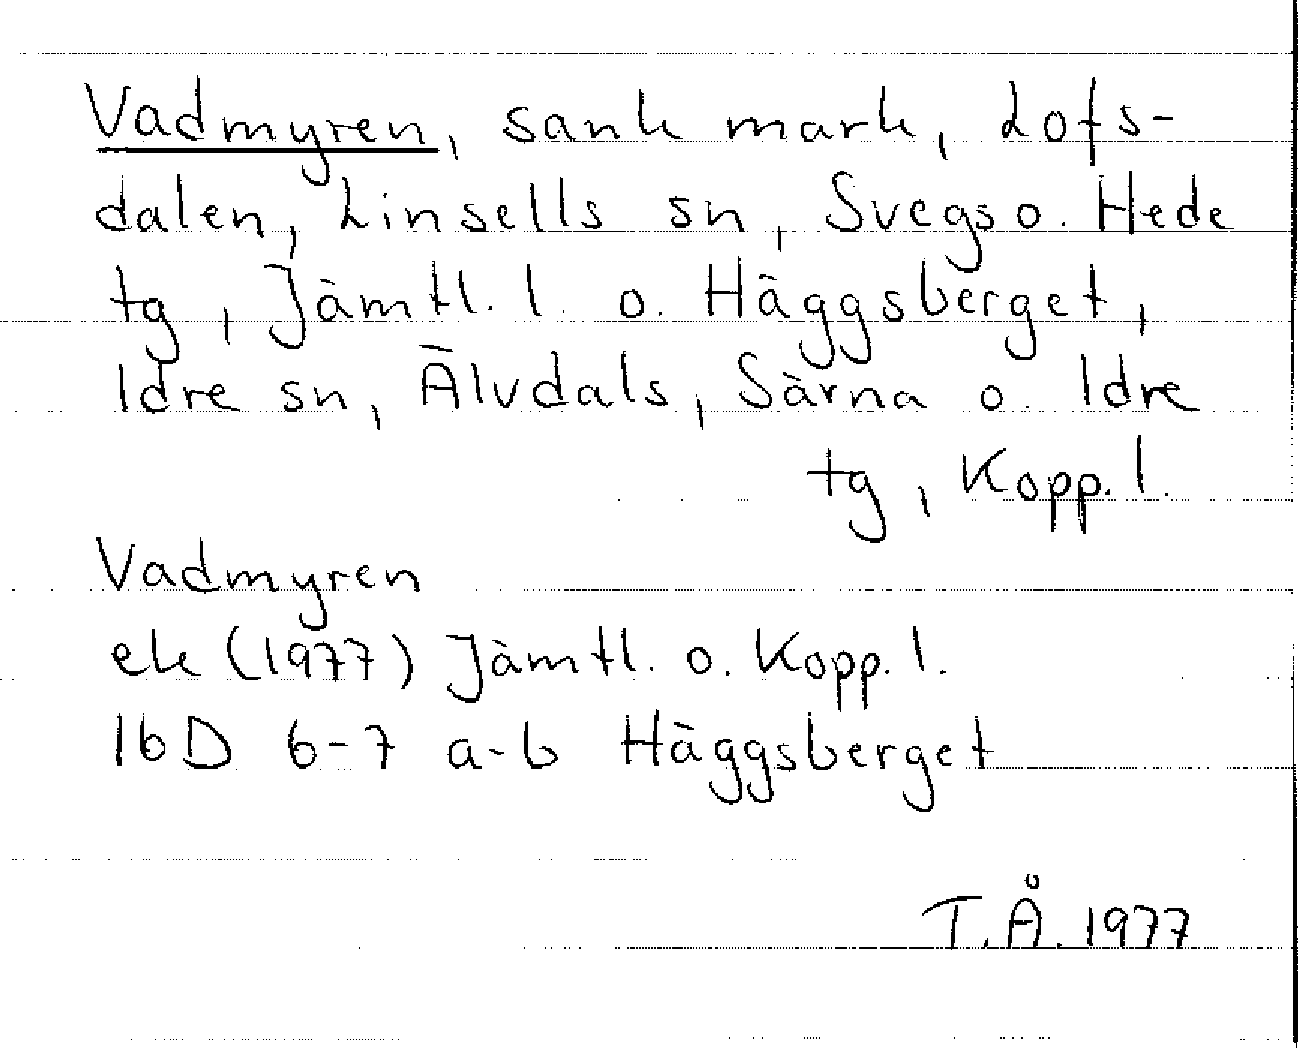 Vadmyren, sank mark, Lofs-
dalen, Linsells sn, Svegs o. Hede
tg, Jämtl. l. o. Häggsberget,
Idre sn, Älvdals, Särna o. Idre
tg, Kopp. l.
Vadmyren
ek (1977) Jämtl. o. Kopp. l.
16D 6-7 a-b Häggsberget
T.Å. 1977